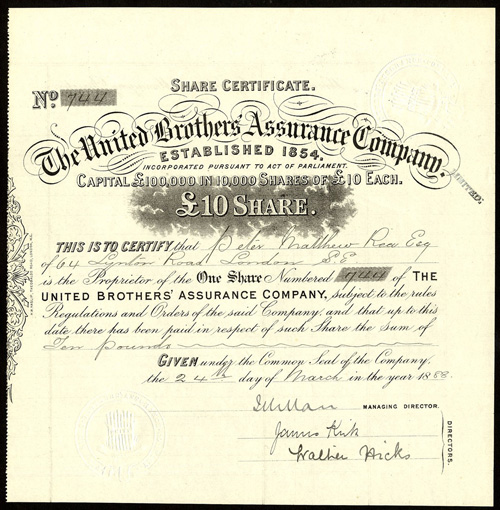 SHARE CERTIFICATE.
No 744
The United Brothers' Assurance Company.
LIMITED.
ESTABLISHED 1854.
INCORPORATED PURSUANT TO ACT OF PARLIAMENT.
CAPITAL £100,000 IN 10,000 SHARES OF £10 EACH.
£10 SHARE.
THIS IS TO CERTIFY that Peter Matthew Rea Esq
of 64 Lynton Road London S.E
is the Proprietor of the One Share Numbered 744 of THE
UNITED BROTHERS' ASSURANCE COMPANY, subject to the rules
Regulations and Orders of the said Company; and that up to this
date there has been paid in respect of such Share the sum of
Ten pounds
GIVEN under the Common Seal of the Company,
the 24th day of March in the year 1888.
MANAGING DIRECTOR.
James Kirk
Walter Hicks
DIRECTORS.